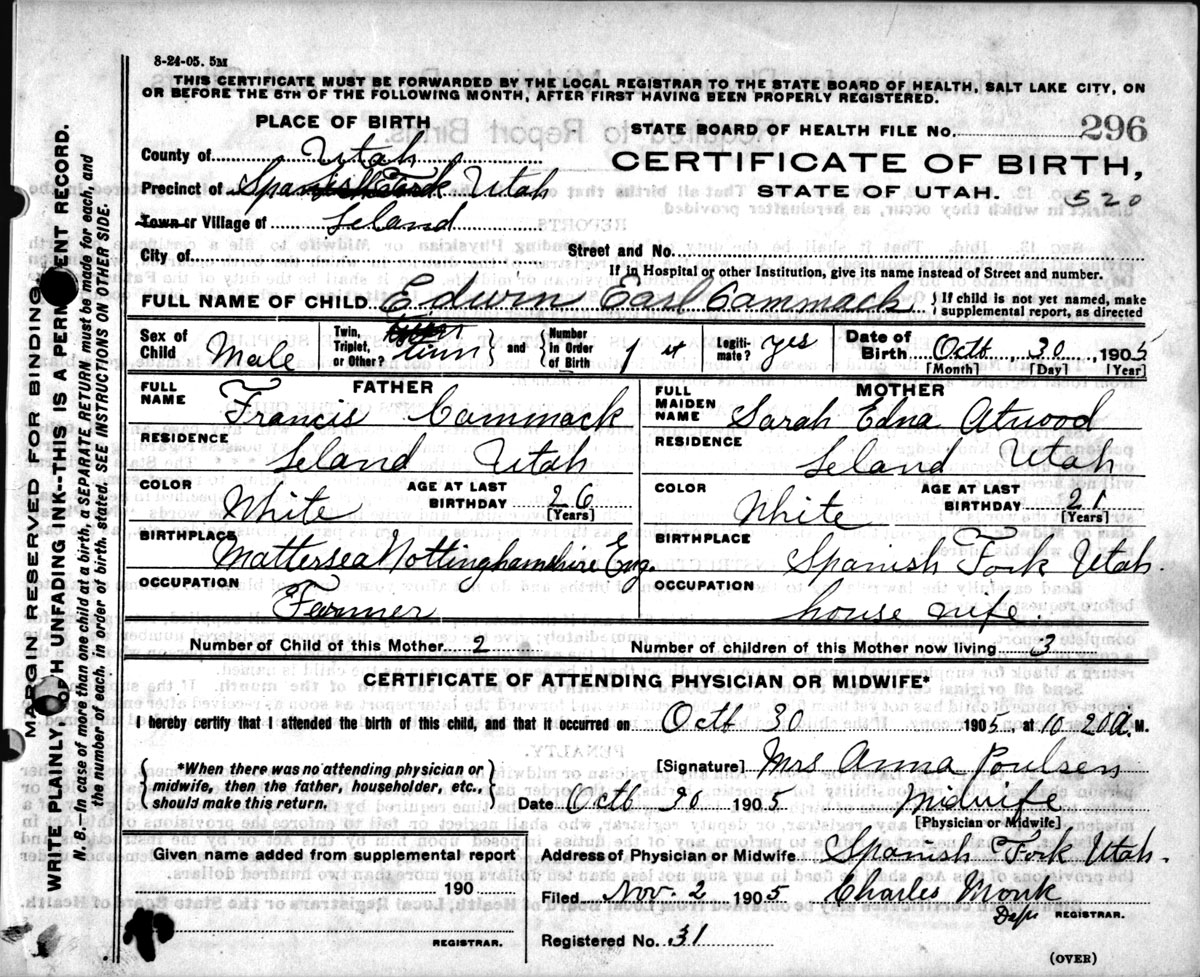 8-24-05. 5M
THIS CERTIFICATE MUST BE FORWARDED BY THE LOCAL REGISTRAR TO THE STATE BOARD OF HEALTH, SALT LAKE CITY, ON
OR BEFORE THE 5TH OF THE FOLLOWING MONTH, AFTER FIRST HAVING BEEN PROPERLY REGISTERED.
PLACE OF BIRTH
STATE BOARD OF HEALTH FILE NO. 296
County of Utah
CERTIFICATE OF BIRTH,
Precinct of Spanish Fork Utah
STATE OF UTAH. 520
Town or Village of Leland
City of
Street and No.
If in Hospital or other Institution, give its name instead of Street and number.
FULL NAME OF CHILD Edwin Earl Cammack { If child is not yet named, make
supplemental report, as directed
Sex of Child Male Twin, Triplet, or Other? twin and Number in Order of Birth 1st Legiti- mate? yes Date of Birth Octb, 30, 1905
[Month] [Day] [Year]
FULL NAME FATHER Francis Cammack
FULL MAIDEN NAME MOTHER Sarah Edna Atwood
RESIDENCE Leland Utah
RESIDENCE Leland Utah
COLOR White AGE AT LAST BIRTHDAY 26 [Years]
COLOR White AGE AT LAST BIRTHDAY 21 [Years]
BIRTHPLACE Mattersea Nottinghamshire Eng.
BIRTHPLACE Spanish Fork Utah.
OCCUPATION Farmer
OCCUPATION house wife.
Number of Child of this Mother 2 Number of children of this Mother now living 3
CERTIFICATE OF ATTENDING PHYSICIAN OR MIDWIFE*
I hereby certify that I attended the birth of this child, and that it occurred on Octb 30 1905, at 10 20 a. M.
{ *When there was no attending physician or
midwife, then the father, householder, etc.,
should make this return. }
[Signature] Mrs Anna Poulsen
Date Octb 30 1905 Midwife
[Physician or Midwife]
Given name added from supplemental report
190
REGISTRAR.
Address of Physician or Midwife Spanish Fork Utah.
Filed Nov. 2 1905 Charles Monk
Dept REGISTRAR.
Registered No. 31
(OVER)
MARGIN RESERVED FOR BINDING.
WRITE PLAINLY, WITH UNFADING INK--THIS IS A PERMANENT RECORD.
N. B.--In case of more than one child at a birth, a SEPARATE RETURN must be made for each, and
the number of each, in order of birth, stated. SEE INSTRUCTIONS ON OTHER SIDE.